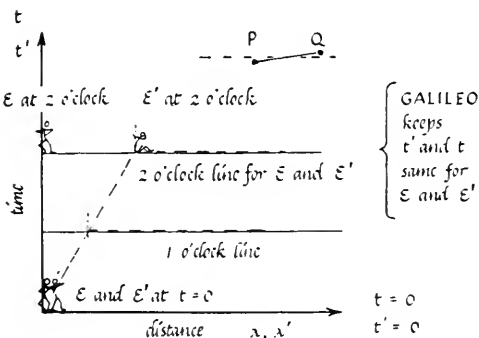 t
t'
P Q
ε at 2 o'clock ε' at 2 o'clock
GALILEO
keeps
t' and t
same for
ε and ε'
2 o'clock line for ε and ε'
time
1 o'clock line
ε and ε' at t = 0
distance x, x'
t = 0
t' = 0